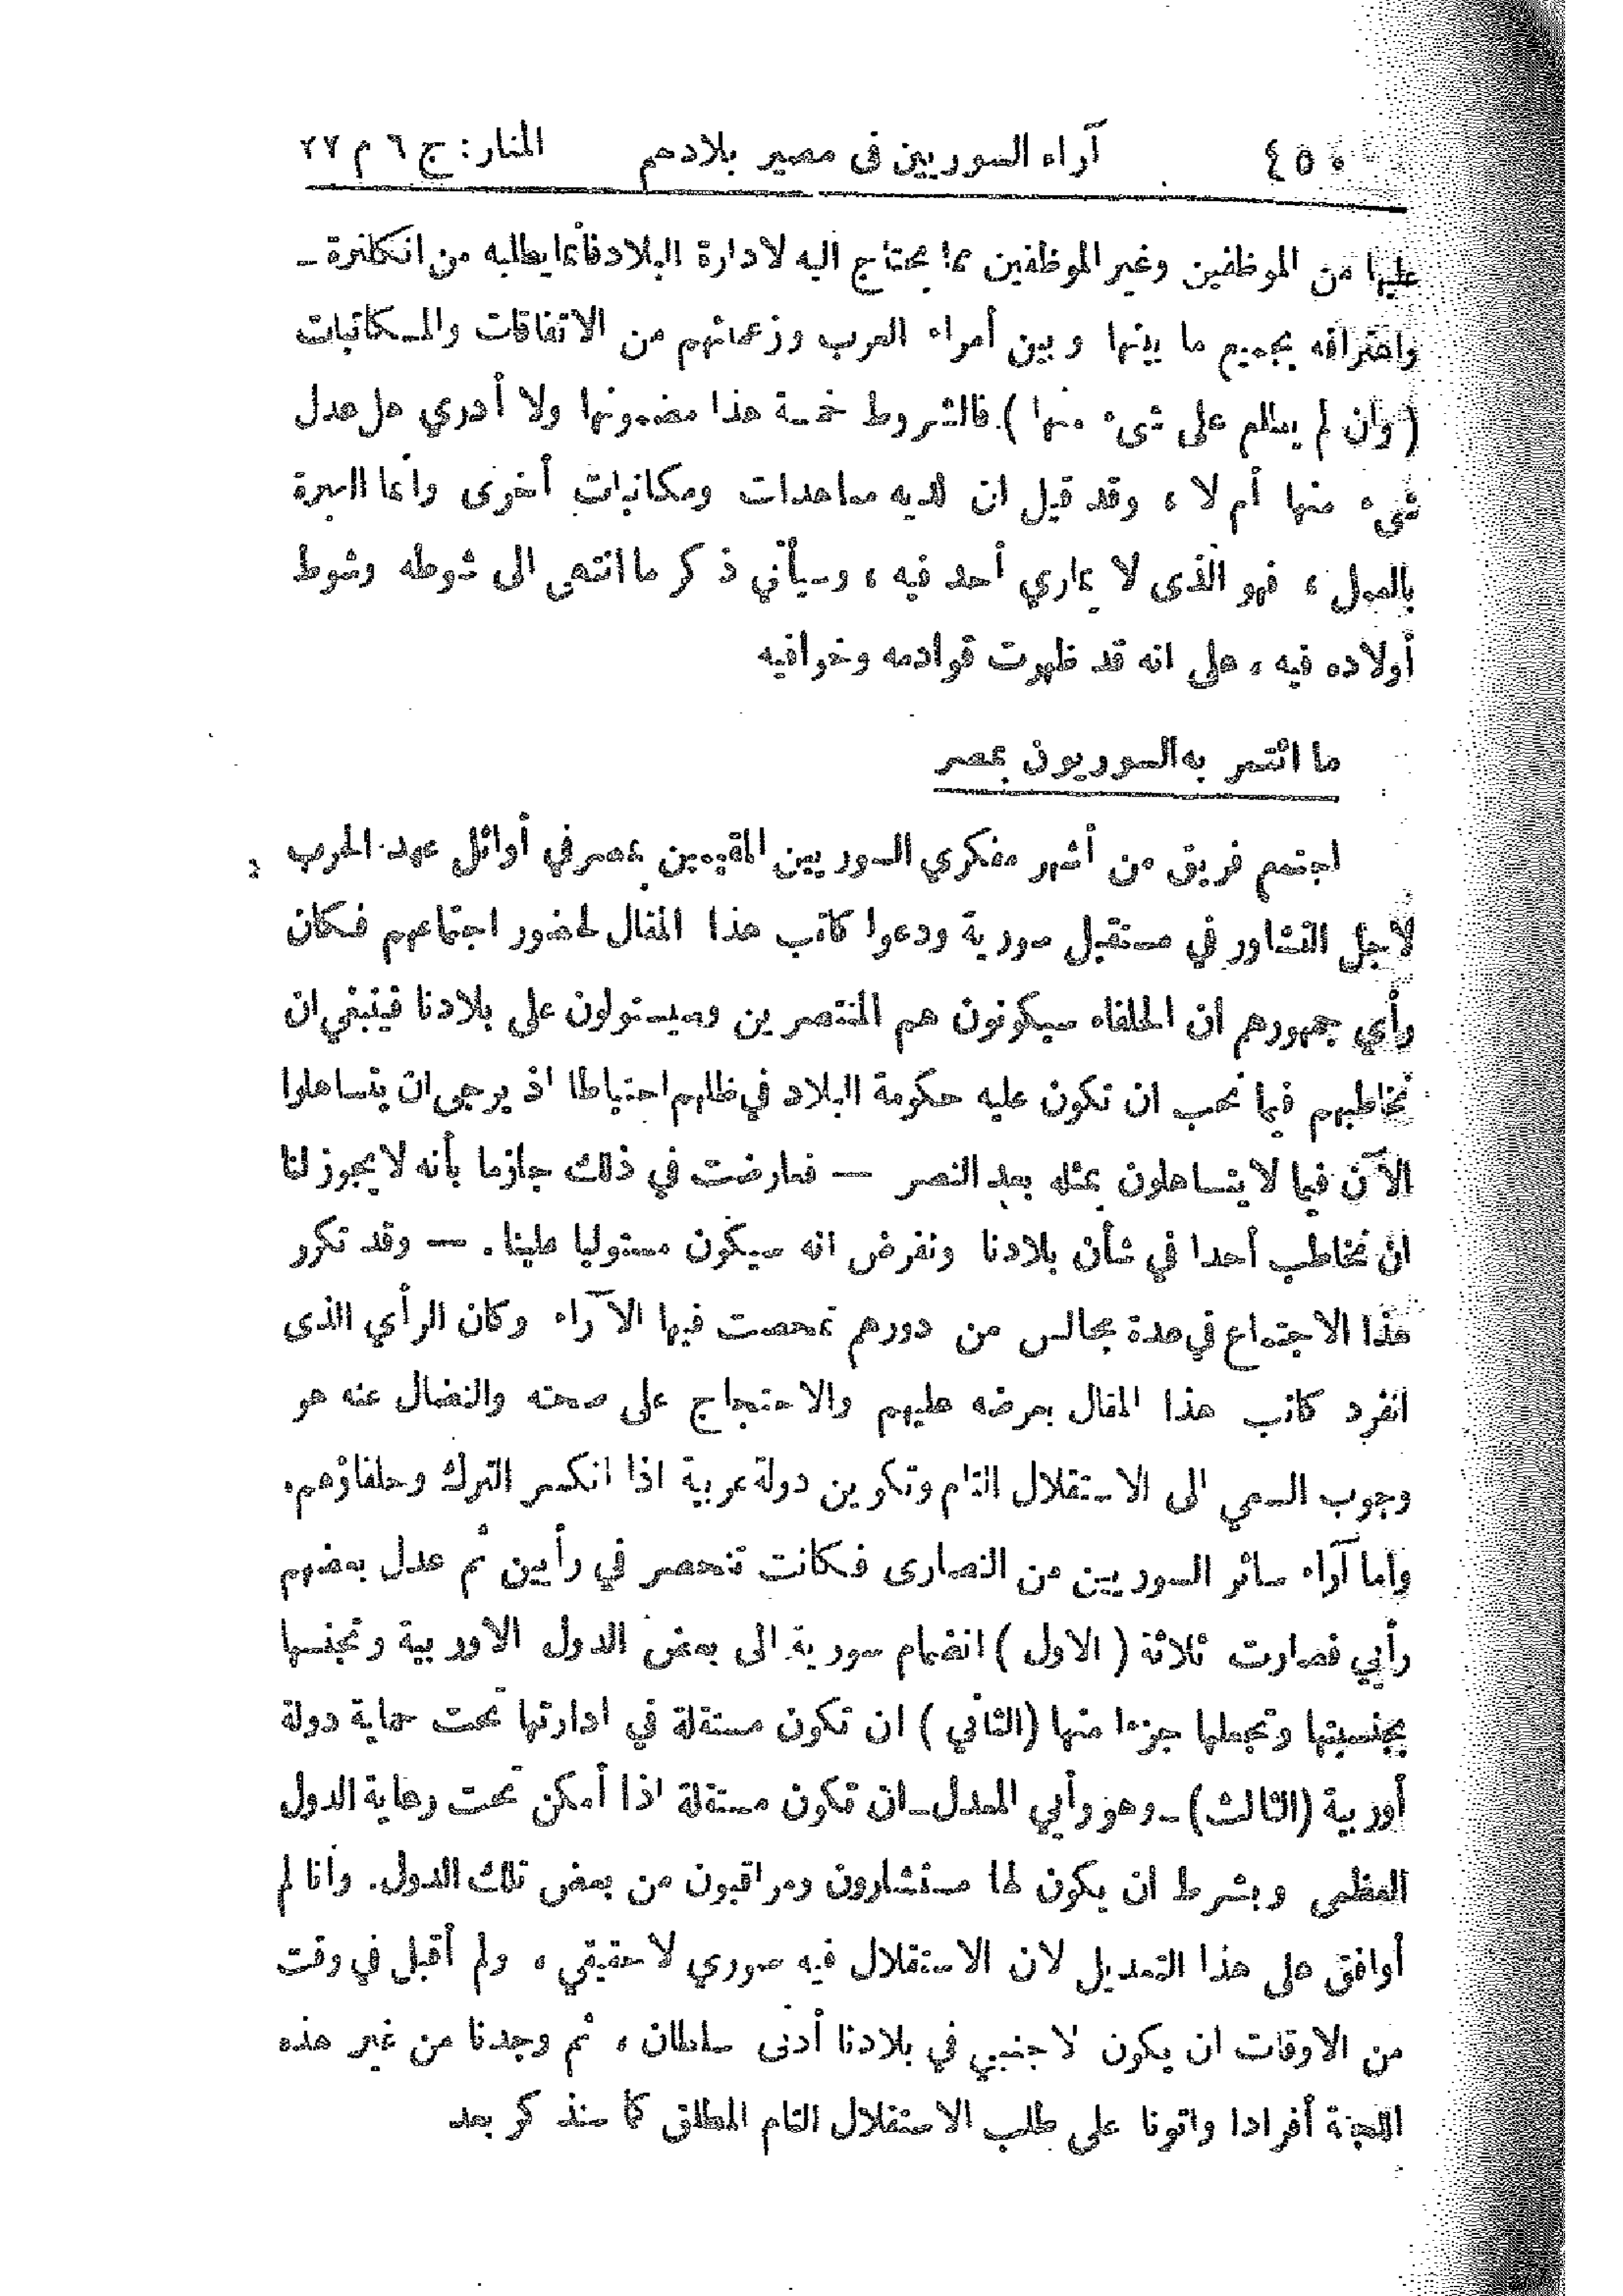 ٤٥٠ آراء السوريين فى مصير بلادهم المنار: ج ٦ م ٢٧
عليها من الموظفين وغير الموظفين مما يحتاج اليه لادارة البلاد فانما يطلبه من انكلترة ـ
واعترافه بجميع ما بينها وبين أمراء العرب وزعمائهم من الاتفاقات والمكاتبات
( وان لم يطلع على شىء منها ) فالشروط خمسة هذا مضمونها ولا أدري هل عدل
شىء منها أم لا ، وقد قيل ان لديه معاهدات ومكاتبات أخرى وانما العبرة
بالعمل ، فهو الذى لا يماري أحد فيه ، وسيأتي ذكر ما انتهى الى شوطه وشوط
أولاده فيه ، على انه قد ظهرت قوادمه وخوافيه
ما ائتمر به السوريون بمصر
اجتمع فريق من أشهر مفكري السوريين المقيمين بمصر في أوائل عهد الحرب
لاجل التشاور في مستقبل سورية ودعوا كاتب هذا المقال لحضور اجتماعهم فكان
رأي جمهورهم ان الحلفاء سيكونون هم المنتصرين وسيستولون على بلادنا فينبغي ان
نخاطبهم فيما نحب ان تكون عليه حكومة البلاد في ظلهم احتياطا اذ يرجى ان يتساهلوا
الآن فيما لا يتساهلون بمثله بعد النصر — فعارضت في ذلك جازما بأنه لا يجوز لنا
ان نخاطب أحدا في شأن بلادنا ونفرض انه سيكون مستوليا علينا . — وقد تكرر
هذا الاجتماع في عدة مجالس من دورهم تمحصت فيها الآراء وكان الرأي الذى
انفرد كاتب هذا المقال بعرضه عليهم والاحتجاج على صحته والنضال عنه هو
وجوب السعي الى الاستقلال التام وتكوين دولة عربية اذا انكسر الترك وحلفاؤهم.
واما آراء سائر السوريين من النصارى فكانت تنحصر في رأيين ثم عدل بعضهم
رأيي فصارت ثلاثة ( الاول ) انضمام سورية الى بعض الدول الاوربية وتجنسها
بجنسيتها وتجعلها جزءا منها (الثاني ) ان تكون مستقلة في ادارتها تحت حماية دولة
أوربية (الثالث) ـ وهو رأيي المعدل ـ ان تكون مستقلة اذا أمكن تحت رعاية الدول
العظمى وبشرط ان يكون لها مستشارون ومراقبون من بعض تلك الدول. وانا لم
أوافق على هذا التعديل لان الاستقلال فيه صوري لا حقيقي ، ولم أقبل في وقت
من الاوقات ان يكون لاجنبي في بلادنا أدنى سلطان ، ثم وجدنا من غير هذه
اللجنة أفرادا واتونا على طلب الاستقلال التام المطلق كما سنذكر بعد